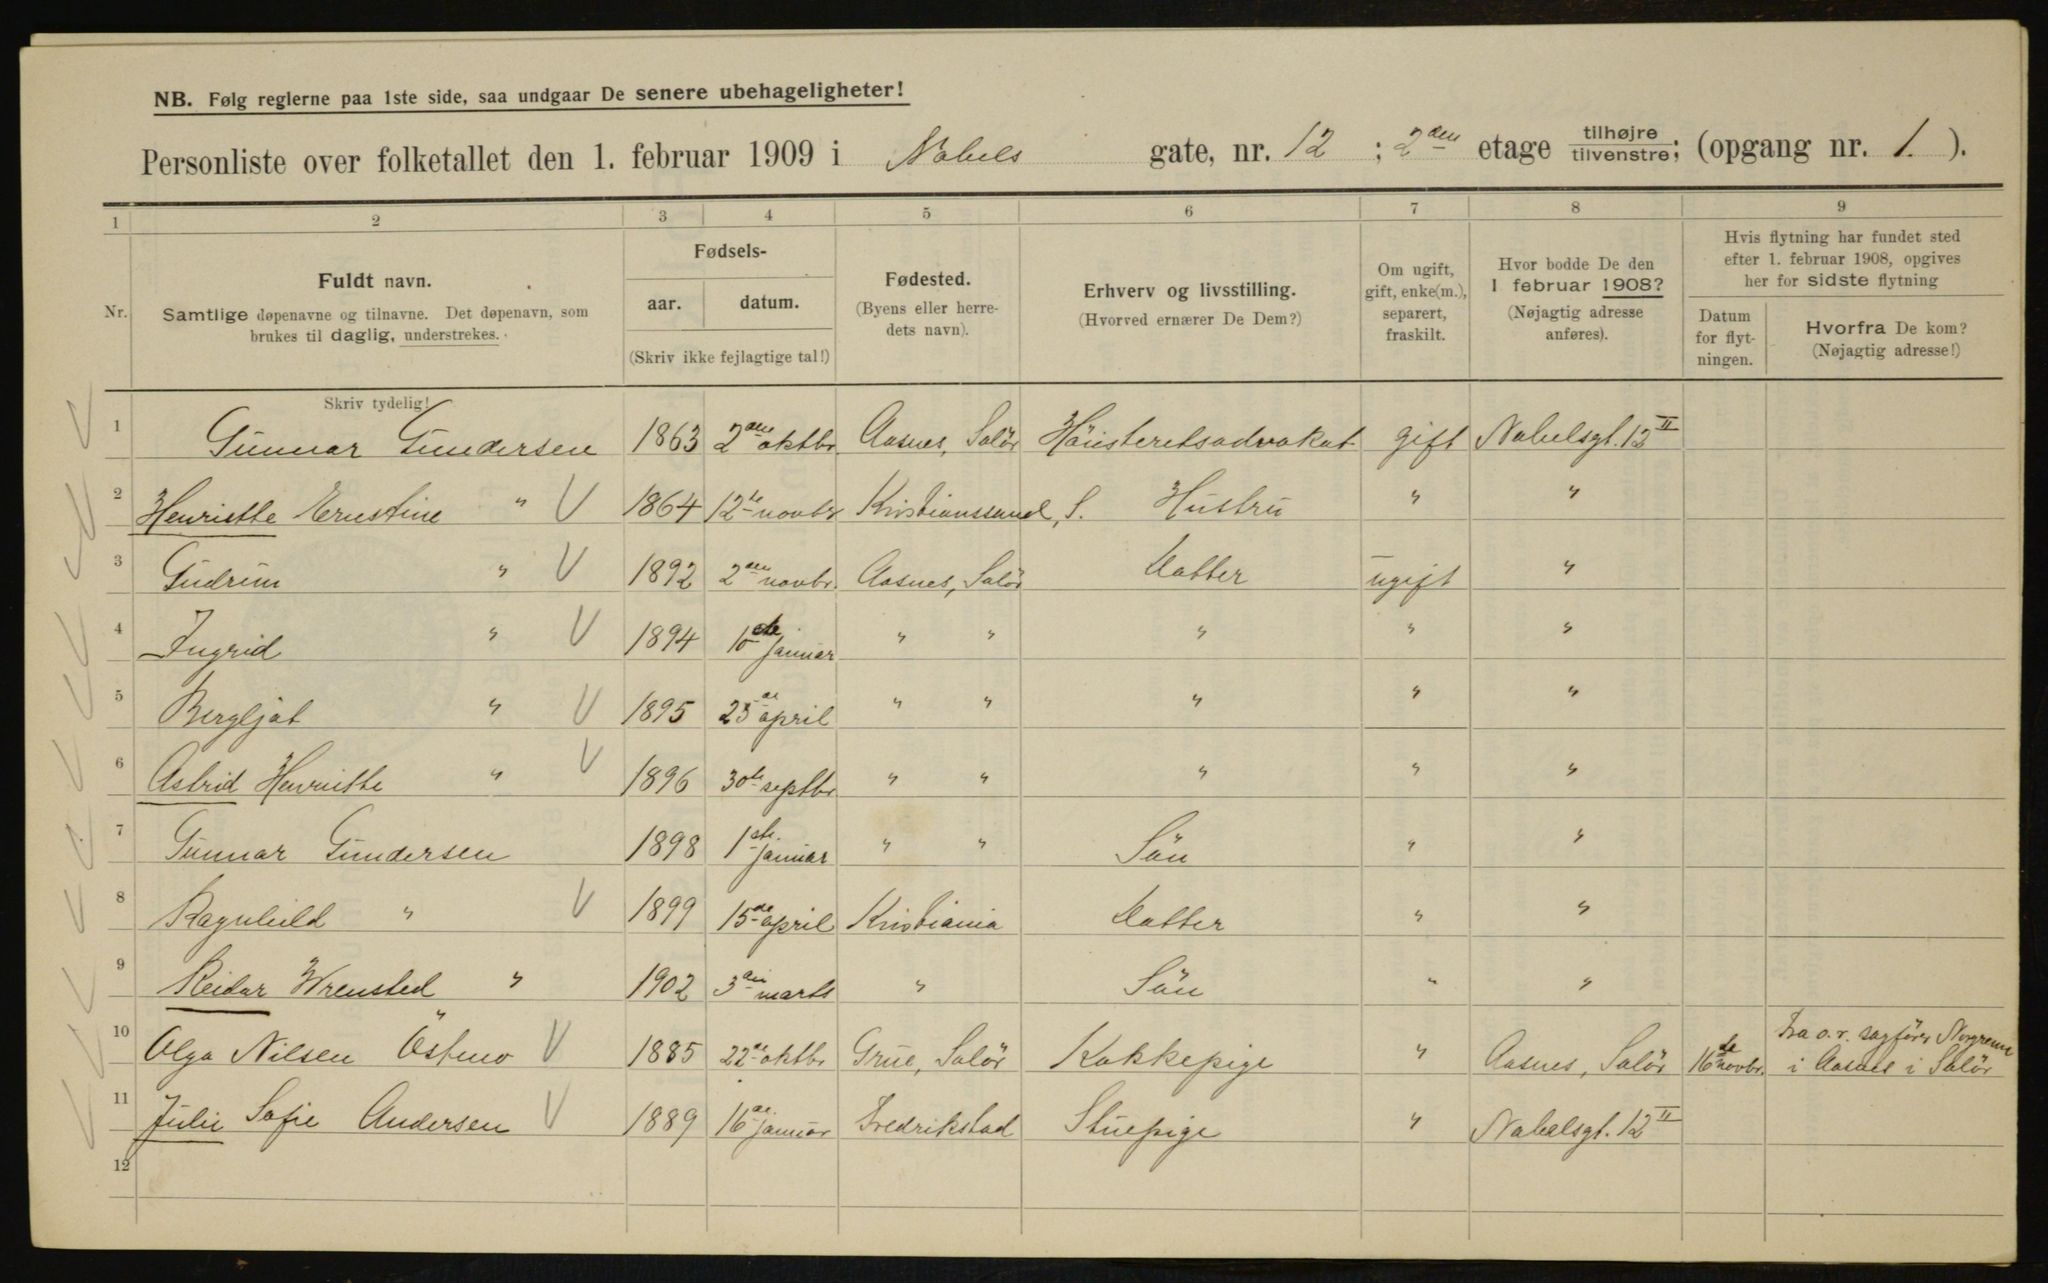 NB. Følg reglerne paa 1ste side, saa undgaar De senere ubehageligheter!
Personliste over folketallet den 1. februar 1909 i Nobels gate, nr. 12 ; 2den etage tilhøjre tilvenstre; (opgang nr. 1. ).
1 2 3 4 5 6 7 8 9
Nr.
Fuldt navn.
Samtlige døpenavne og tilnavne. Det døpenavn, som
brukes til daglig, understrekes.
Skriv tydelig!
Fødsels-
aar. datum.
(Skriv ikke fejlagtige tal!)
Fødested.
(Byens eller herre-
dets navn).
Erhverv og livsstilling.
(Hvorved ernærer De Dem?)
Om ugift,
gift, enke(m.),
separert,
fraskilt.
Hvor bodde De den
1 februar 1908?
(Nøjagtig adresse
anføres).
Hvis flytning har fundet sted
efter 1. februar 1908, opgives
her for sidste flytning
Datum
for flyt-
ningen.
Hvorfra De kom?
(Nøjagtig adresse!)
1 Gunnar Gundersen 1863 2den oktbr. Aasnes, Solör Höiesteretsadvokat gift Nobelsgt. 12 II
2 Henriette Ernestine " V 1864 12te novbr Kristianssand, S. Hustru " "
3 Gudrun " V 1892 2den novbr. Aasnes, Solör Datter ugift "
4 Ingrid " V 1894 10de januar " " " " "
5 Bergljot " V 1895 23de april " " " " "
6 Astrid Henriette " V 1896 30te septbr " " " " "
7 Gunnar Gundersen 1898 1ste januar " " Sön " "
8 Ragnhild " V 1899 15de april Kristiania Datter " "
9 Reidar Wrensted " 1902 3die marts " Sön " "
10 Olga Nilsen Östmo V 1885 22de oktbr Grue, Solör Kokkepige " Aasnes, Solör 16de novbr. Fra o.r. sagförer Norgrenn
i Aasnes i Solör
11 Julie Sofie Andersen V 1889 16de januar Fredrikstad Stuepige " Nobelsgt. 12 II
12